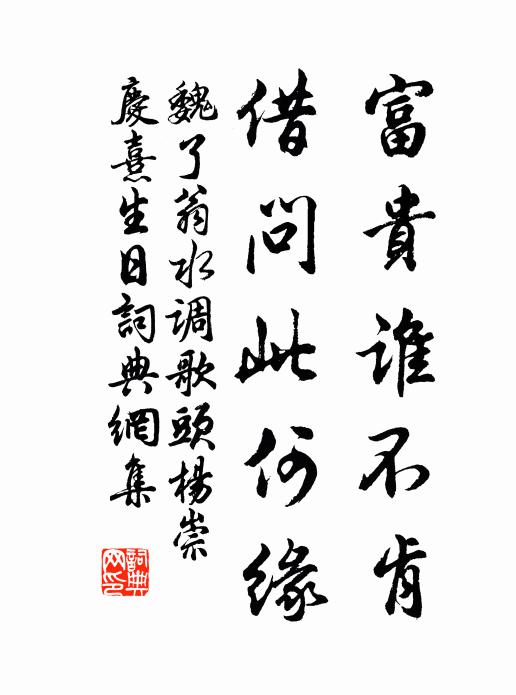 富貴誰不肯
借問此何緣
魏了翁水调歌頭楊崇
慶熹生日詞典網集
詞典网印